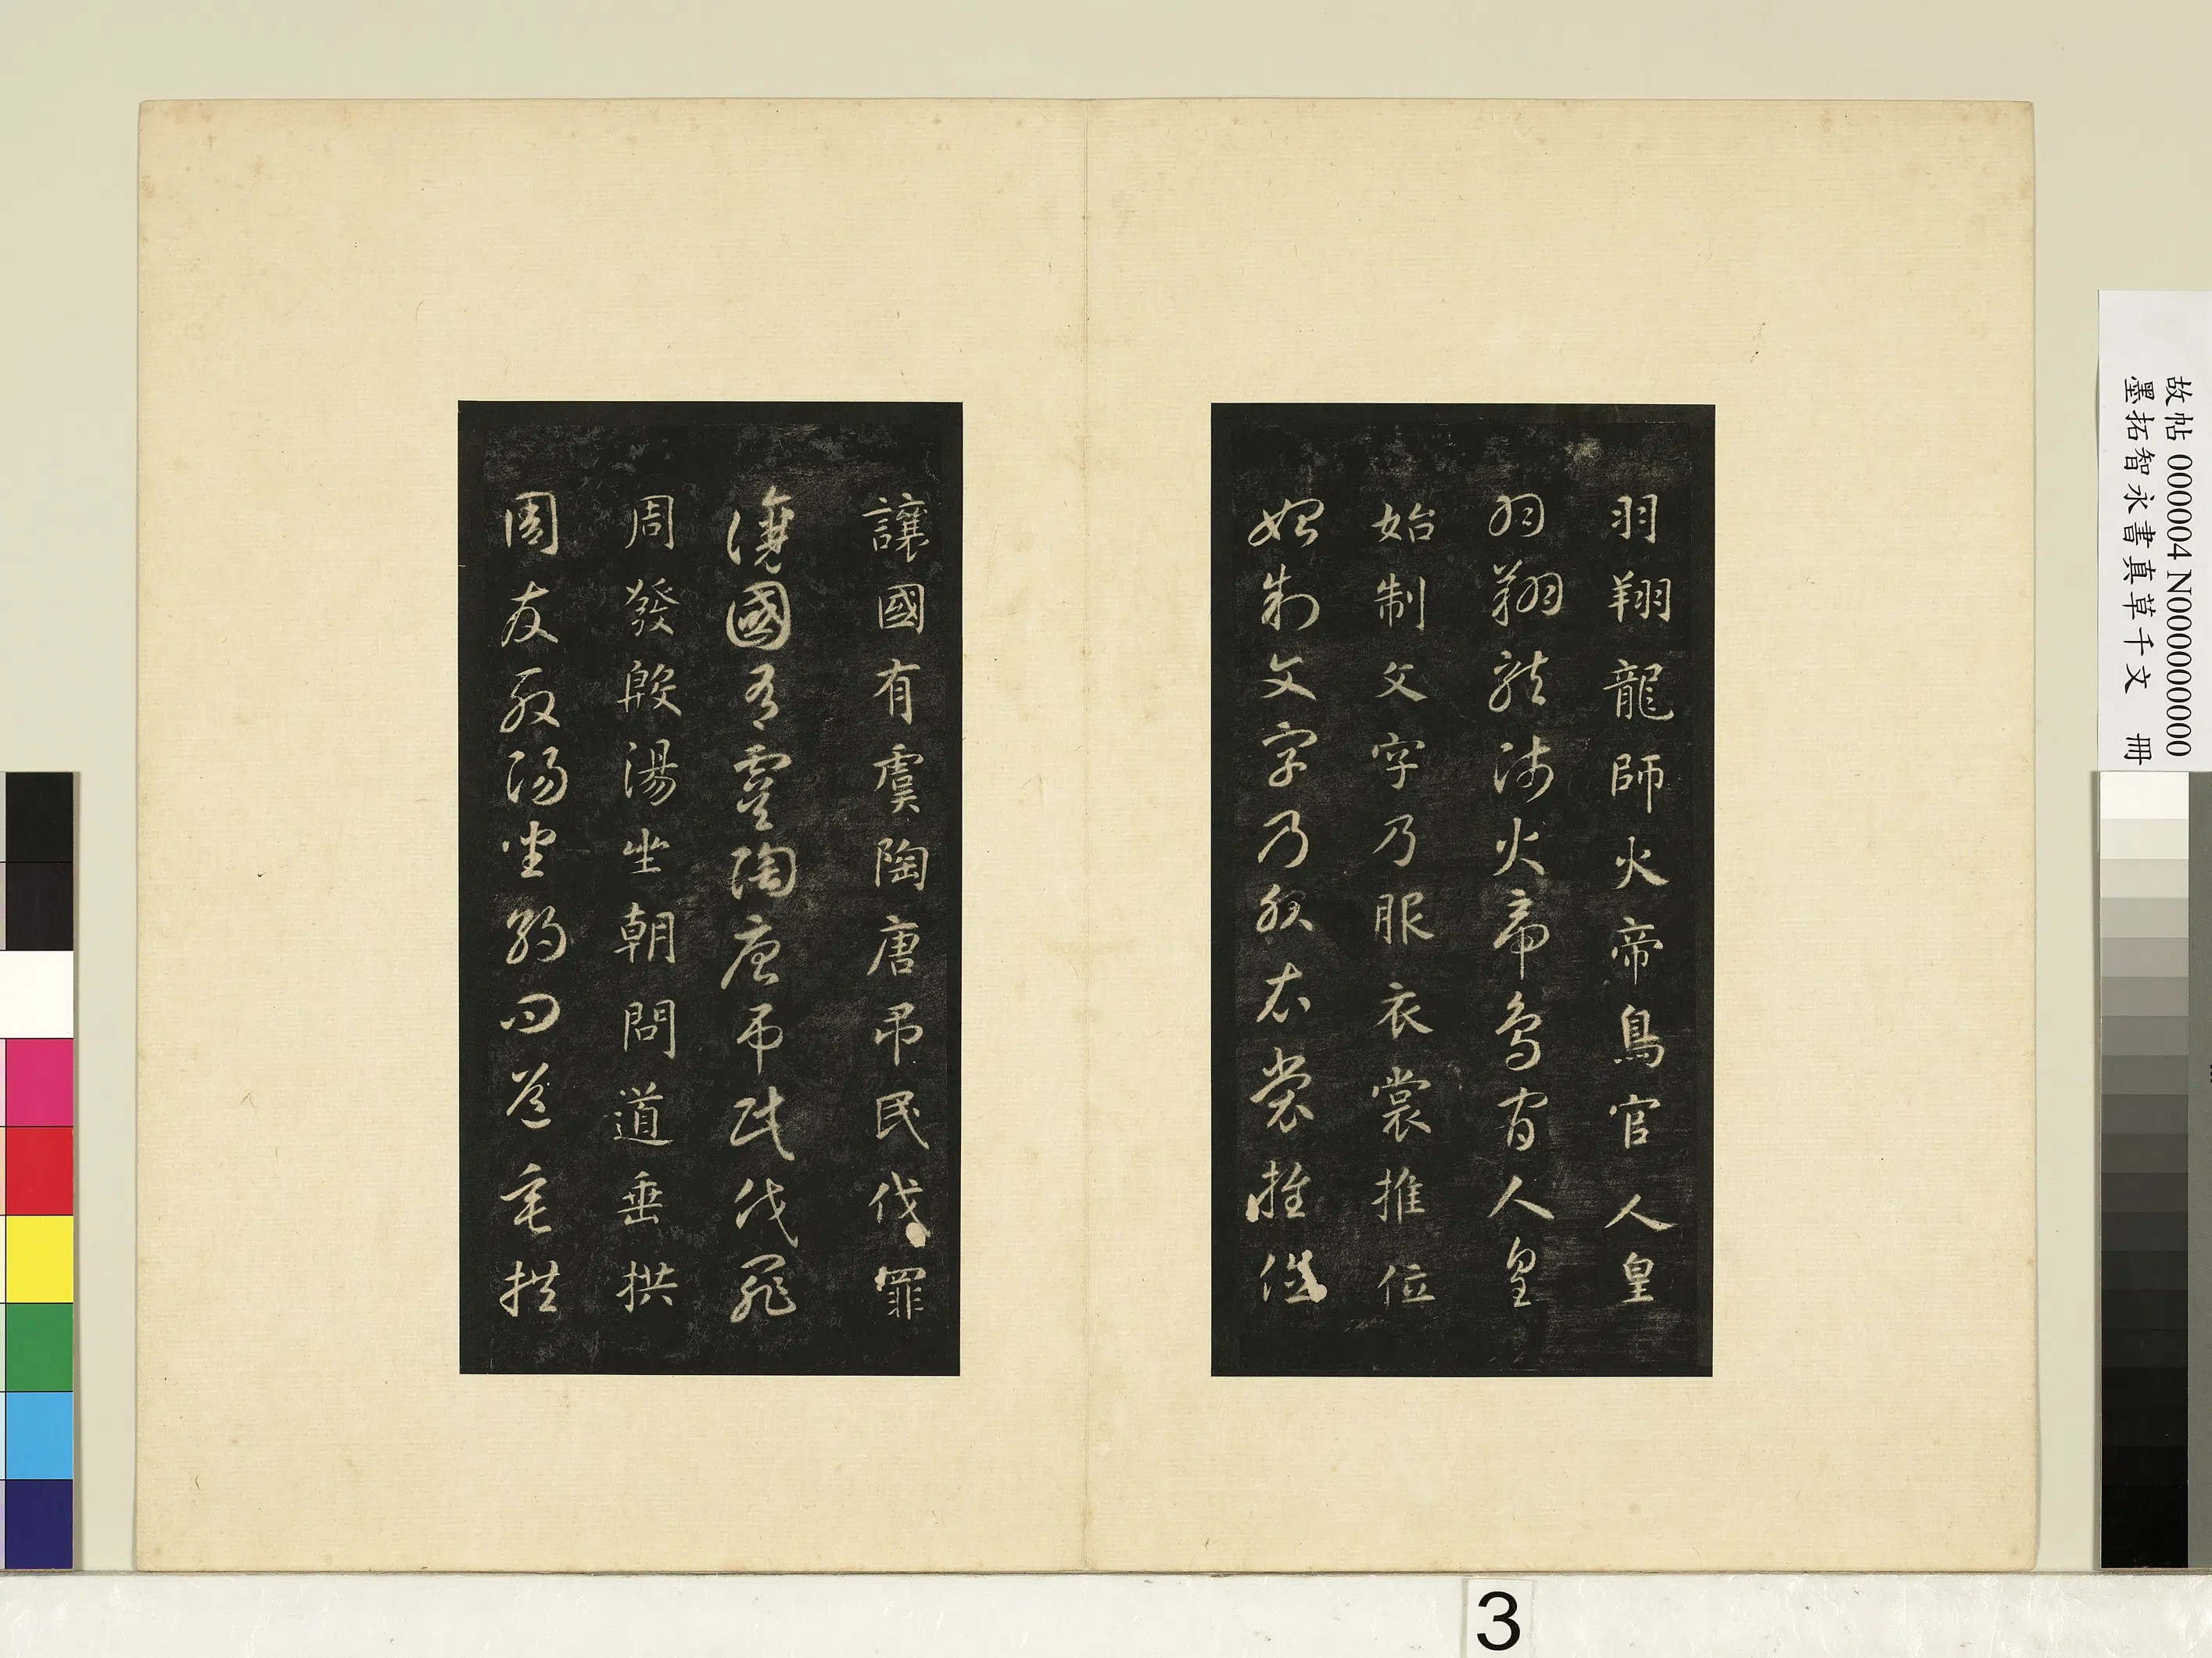 羽翔龍師火帝鳥官人皇
羽翔龍師火帝鳥官人皇
始制文字乃服衣裳推位
始制文字乃服衣裳推位
讓國有虞陶唐弔民伐罪
讓國有虞陶唐弔民伐罪
周發殷湯坐朝問道垂拱
周發殷湯坐朝問道垂拱
故帖 000004 N000000000
墨拓智永書真草千文 冊
3